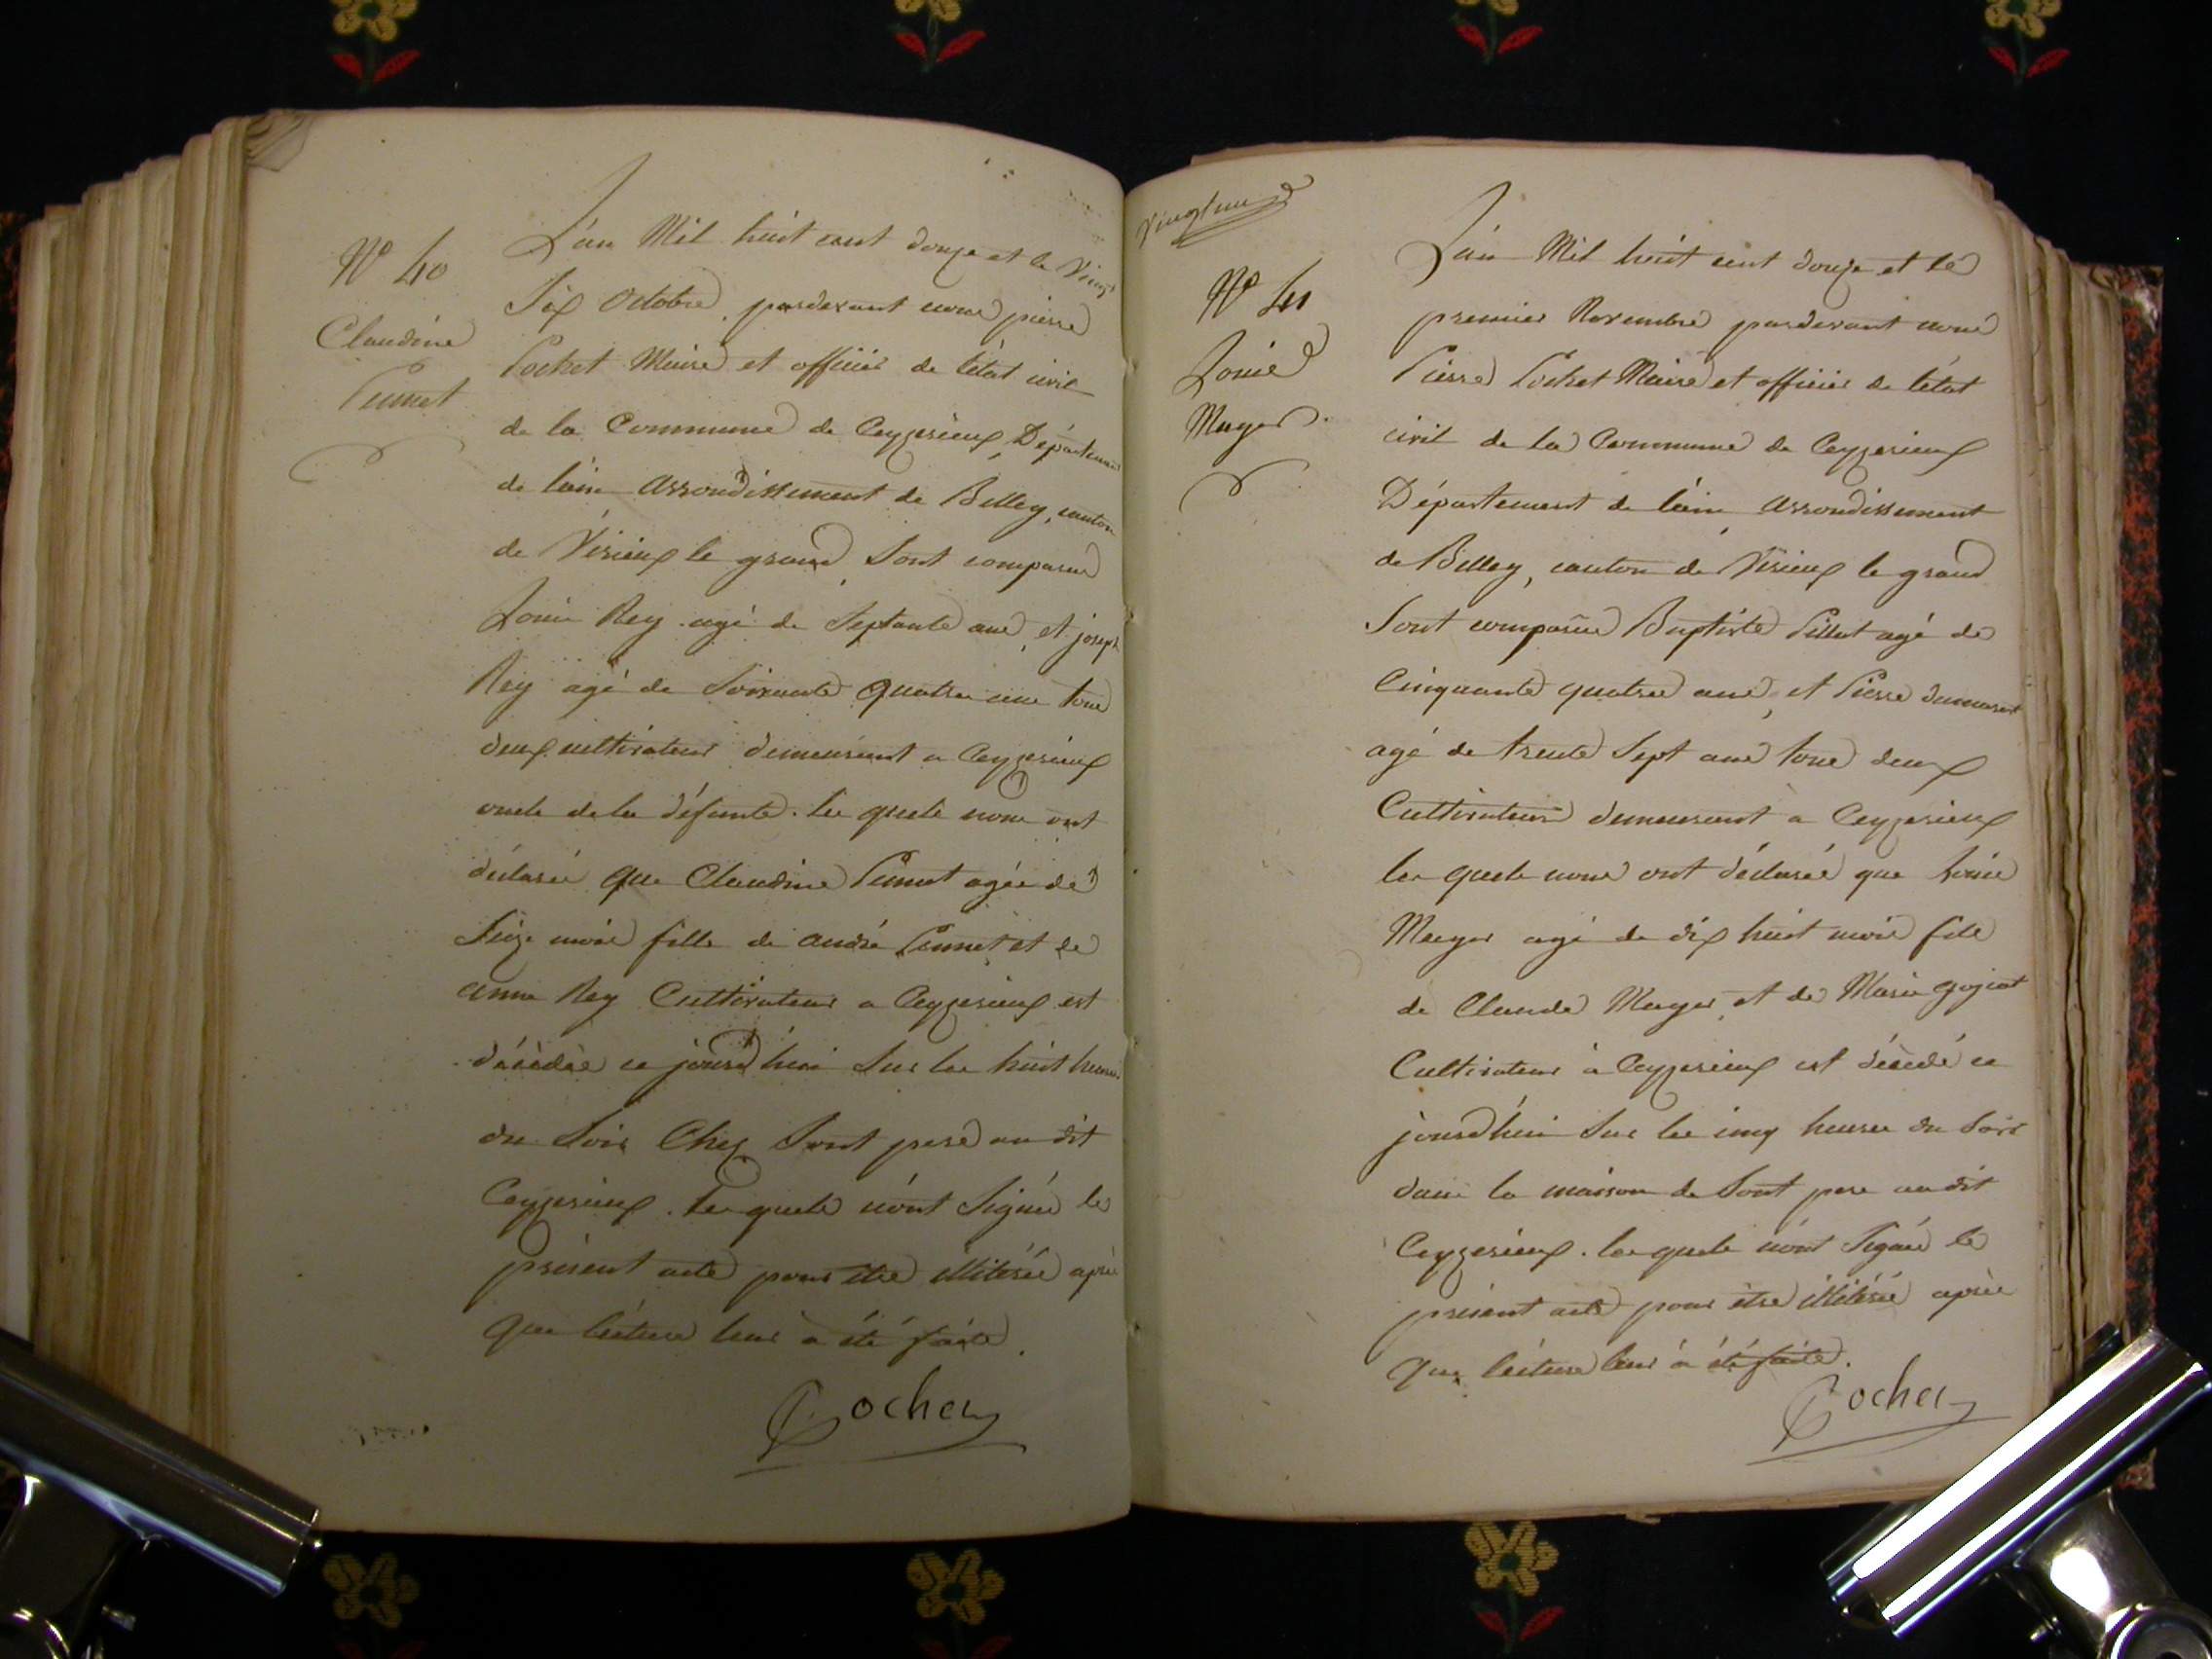 N° 40
Claudine
Pennet
L'an Mil huit cent douze et le Vingt
Six Octobre, pardevant nous pierre
Cochet Maire et officier de l'état civil
de la Commune de Ceyzerieux, Département
de l'ain arrondissement de Belley, canton
de Virieux le grand, Sont comparus
Louis Rey agé de Septante ans, et joseph
Rey agé de Soixante quatre ans tous
deux cultivateurs demeurant a Ceyzerieux
oncle de la défunte. les quels nous ont
déclaréé que Claudine Pennet agée de
Seize mois fille de andré Pennet et de
anne Rey Cultivateur a Ceyzerieux est
décédée ce jourd'hui Sur les huit heures
du Soir Chez Sont pere au dit
Ceyzerieux. les quels n'ont Signé le
présent acte pour être illitéré après
que lecture leur a été faite.
Cochet
Vingt un
N° 41
Louis
Muger.
L'an Mil huit cent douze et le
premier Novembre pardevant nous
Pierre Cochet Maire et officier de l'état
civil de la Commune de Ceyzerieux
Département de l'ain, arrondissement
de Belley, canton de Virieux le grand
Sont comparus Baptiste Pillat agé de
Cinquante quatre ans, et Pierre
agé de trente Sept ans tous deux
Cultivateurs demeurant a Ceyzerieux
les quels nous ont déclaréé que Louis
Muger agé de dix huit mois fils
de Claude Muger, et de Marie gojiat
Cultivateur à Ceyzerieux est décédé ce
jourd'hui Sur les cinq heures du Soir
dans la maison de Sont pere au dit
Ceyzerieux. les quels n'ont Signé le
présent acte pour être illitéré après
que lecture leur à été faite.
Cochet